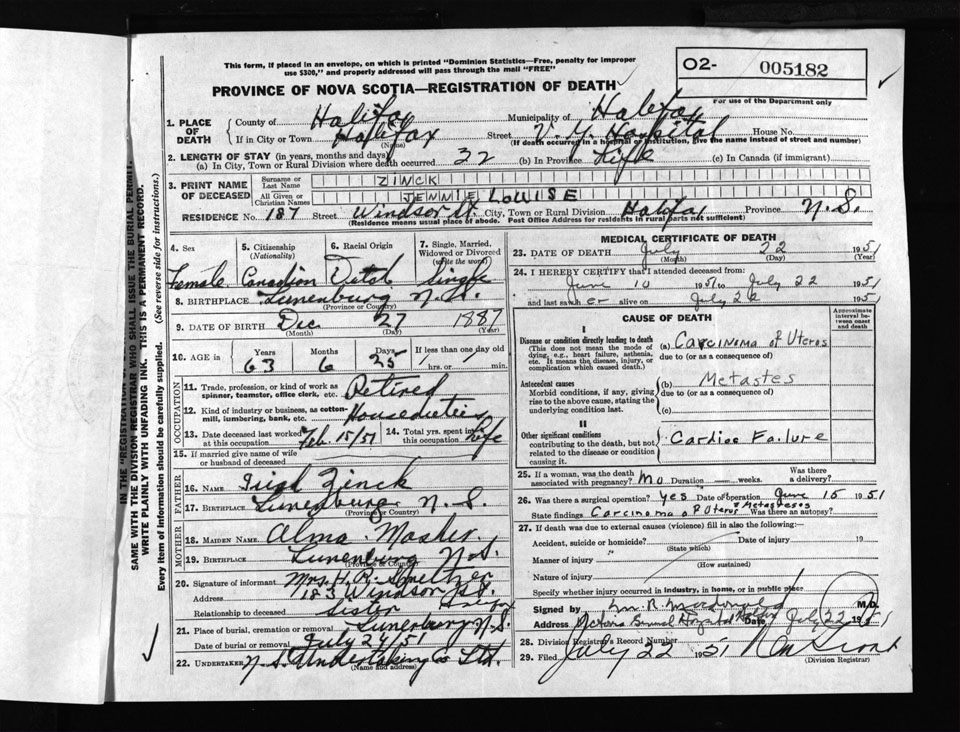 This form, if placed in an envelope, on which is printed "Dominion Statistics—Free, penalty for improper
use $300," and properly addressed will pass through the mail "FREE"
PROVINCE OF NOVA SCOTIA—REGISTRATION OF DEATH
O2- 005182
For use of the Department only
1. PLACE OF DEATH
County of Halifax Municipality of Halifax
If in City or Town Halifax Street V. G. Hospital House No.
(Name) (If death occurred in a hospital or institution, give the name instead of street and number)
2. LENGTH OF STAY (in years, months and days)
(a) In City, Town or Rural Division where death occurred 32 (b) In Province Life (c) In Canada (if immigrant)
3. PRINT NAME OF DECEASED
Surname or Last Name ZINCK
All Given or Christian Names JENNIE LOUISE
RESIDENCE No. 187 Street Windsor St. City, Town or Rural Division Halifax Province N.S.
(Residence means usual place of abode. Post Office Address for residents in rural parts not sufficient)
4. Sex Female
5. Citizenship (Nationality) Canadian
6. Racial Origin Dutch
7. Single, Married, Widowed or Divorced (write the word) Single
8. BIRTHPLACE Lunenburg N.S.
(Province or Country)
9. DATE OF BIRTH Dec. 27 1887
(Month) (Day) (Year)
10. AGE in Years 63 Months 6 Days 25 If less than one day old hrs. or min.
OCCUPATION
11. Trade, profession, or kind of work as spinner, teamster, office clerk, etc. Retired
12. Kind of industry or business, as cotton-mill, lumbering, bank, etc.
13. Date deceased last worked at this occupation Feb. 15/51
14. Total yrs. spent in this occupation Life
15. If married give name of wife or husband of deceased
FATHER
16. NAME Zinck
17. BIRTHPLACE Lunenburg N.S.
(Province or Country)
MOTHER
18. MAIDEN NAME Alma Mosher
19. BIRTHPLACE Lunenburg N.S.
(Province or Country)
20. Signature of informant Mrs. H. R. Smeltzer
Address 183 Windsor St. Halifax
Relationship to deceased Sister
21. Place of burial, cremation or removal Lunenburg N.S.
Date of burial or removal July 24/51
22. UNDERTAKER N.S. Undertaking Co Ltd.
(Name and address)
MEDICAL CERTIFICATE OF DEATH
23. DATE OF DEATH July 22 1951
(Month) (Day) (Year)
24. I HEREBY CERTIFY that I attended deceased from
June 10 1951 to July 22 1951
and last saw her alive on July 22 1951
CAUSE OF DEATH
Approximate interval between onset and death
I
Disease or condition directly leading to death
(This does not mean the mode of dying, e.g., heart failure, asthenia, etc. It means the disease, injury, or complication which caused death.)
(a) Carcinoma of Uterus
due to (or as a consequence of)
Antecedent causes
Morbid conditions, if any, giving rise to the above cause, stating the underlying condition last.
(b) Metastes
due to (or as a consequence of)
(c)
II
Other significant conditions
contributing to the death, but not related to the disease or condition causing it.
Cardiac Failure
25. If a woman, was the death associated with pregnancy? No Duration weeks. Was there a delivery?
26. Was there a surgical operation? Yes Date of operation June 15 1951
State findings Carcinoma of Uterus & Metastases Was there an autopsy?
27. If death was due to external causes (violence) fill in also the following:—
Accident, suicide or homicide? Date of injury 19
(State which)
Manner of injury
(How sustained)
Nature of injury
Specify whether injury occurred in industry, in home, or in public place
Signed by Wm. R. Macdonald M.D.
Address Victoria General Hospital Halifax Date July 22 1951
28. Division Registrar's Record Number
29. Filed July 22 1951
(Division Registrar)
SAME WITH THE DIVISION REGISTRAR WHO SHALL ISSUE THE BURIAL PERMIT.
WRITE PLAINLY WITH UNFADING INK. THIS IS A PERMANENT RECORD.
Every item of information should be carefully supplied. (See reverse side for instructions.)